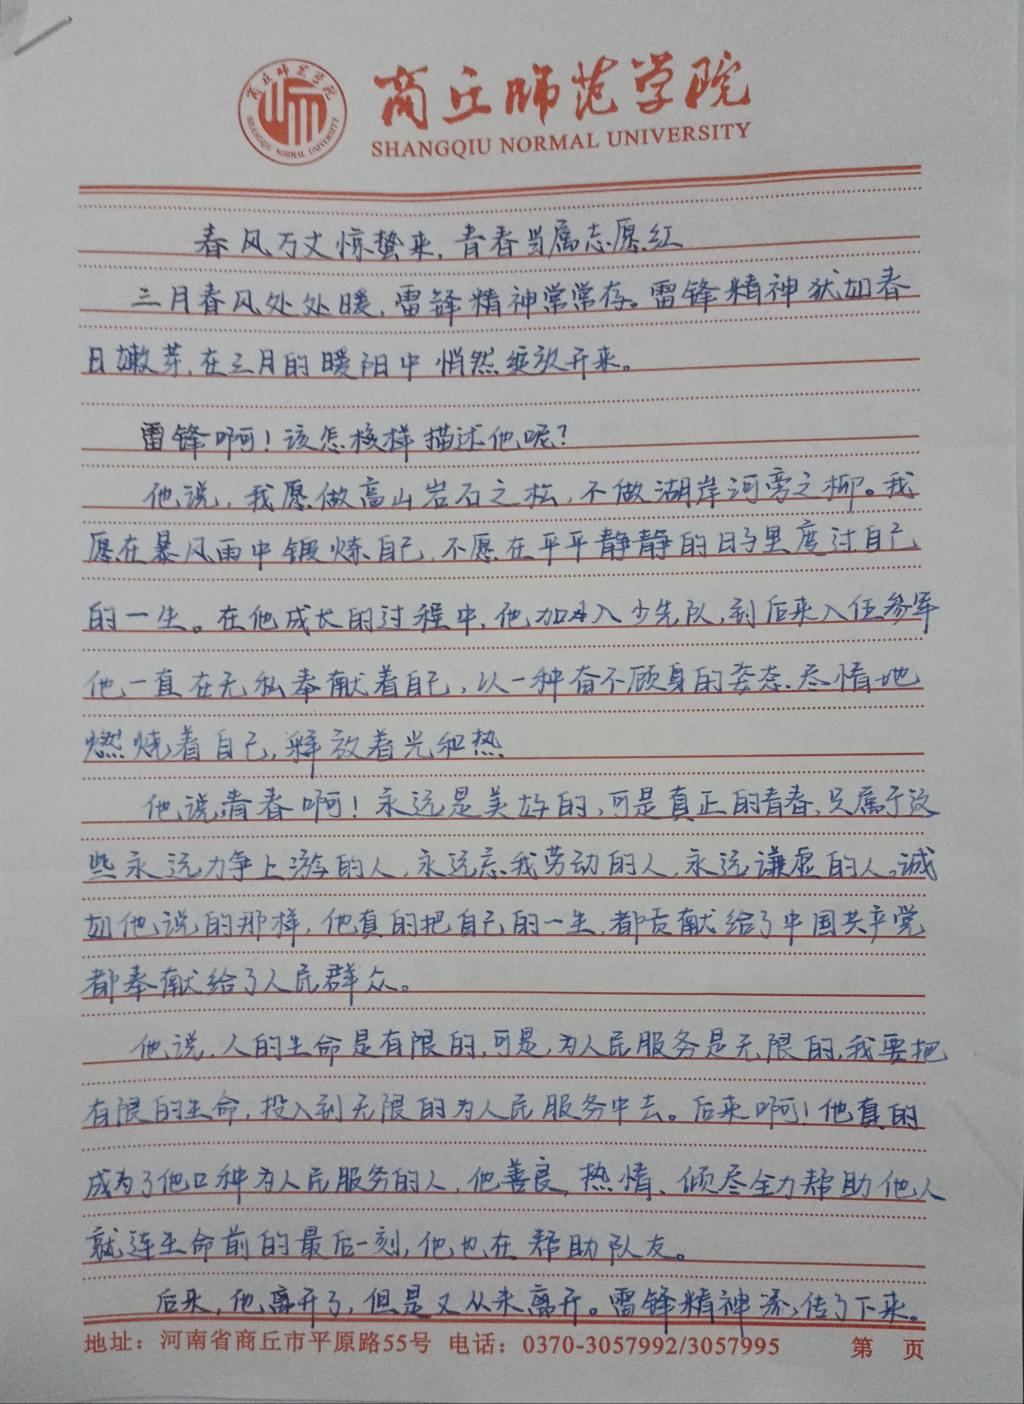 商丘师范学院
SHANGQIU NORMAL UNIVERSITY
春风万丈惊蛰来,青春当属志愿红
三月春风处处暖,雷锋精神常常存。雷锋精神犹如春
日嫩芽,在三月的暖阳中悄然绽放开来。
雷锋啊!该怎样描述他呢?
他说,我愿做高山岩石之松,不做湖岸河旁之柳。我
愿在暴风雨中锻炼自己,不愿在平平静静的日子里度过自己
的一生。在他成长的过程中,他加入少先队,到后来入伍参军
他一直在无私奉献着自己,以一种奋不顾身的姿态、尽情地
燃烧着自己,释放着光和热
他说,青春啊!永远是美好的,可是真正的青春,只属于这
些永远力争上游的人,永远忘我劳动的人,永远谦虚的人。诚
如他说的那样,他真的把自己的一生,都贡献给了中国共产党
都奉献给了人民群众。
他说,人的生命是有限的,可是,为人民服务是无限的,我要把
有限的生命,投入到无限的为人民服务中去。后来啊!他真的
成为了他口种为人民服务的人,他善良,热情、倾尽全力帮助他人
就连生命前的最后一刻,他也在帮助队友。
后来,他离开了,但是又从未离开。雷锋精神流传了下来。
地址:河南省商丘市平原路55号 电话:0370-3057992/3057995 第 页